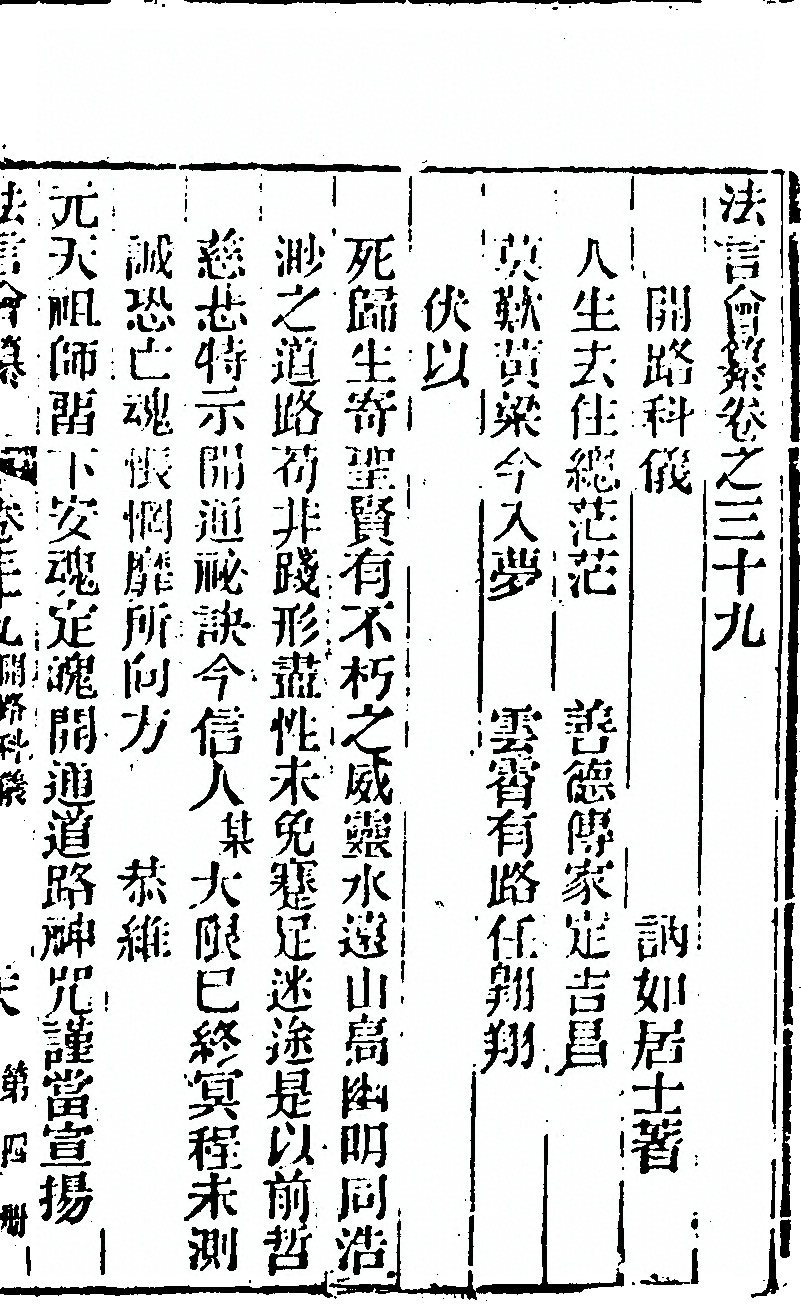 法言會纂卷之三十九
開路科儀　訥如居士著
人生去住總茫茫　善德傳家定吉昌
莫歎黃粱今入夢　雲霄有路任翱翔
伏以
死歸生寄聖賢有不朽之威靈水遠山高幽明同浩
渺之道路苟非踐形盡性未免蹇足迷途是以前哲
慈悲特示開通祕訣今信人某大限已終冥程未測
誠恐亡魂悵惘靡所向方　恭維
元天祖師留下安魂定魄開通道路神咒謹當宣揚
法言會纂　卷三十九開路科儀　第四冊